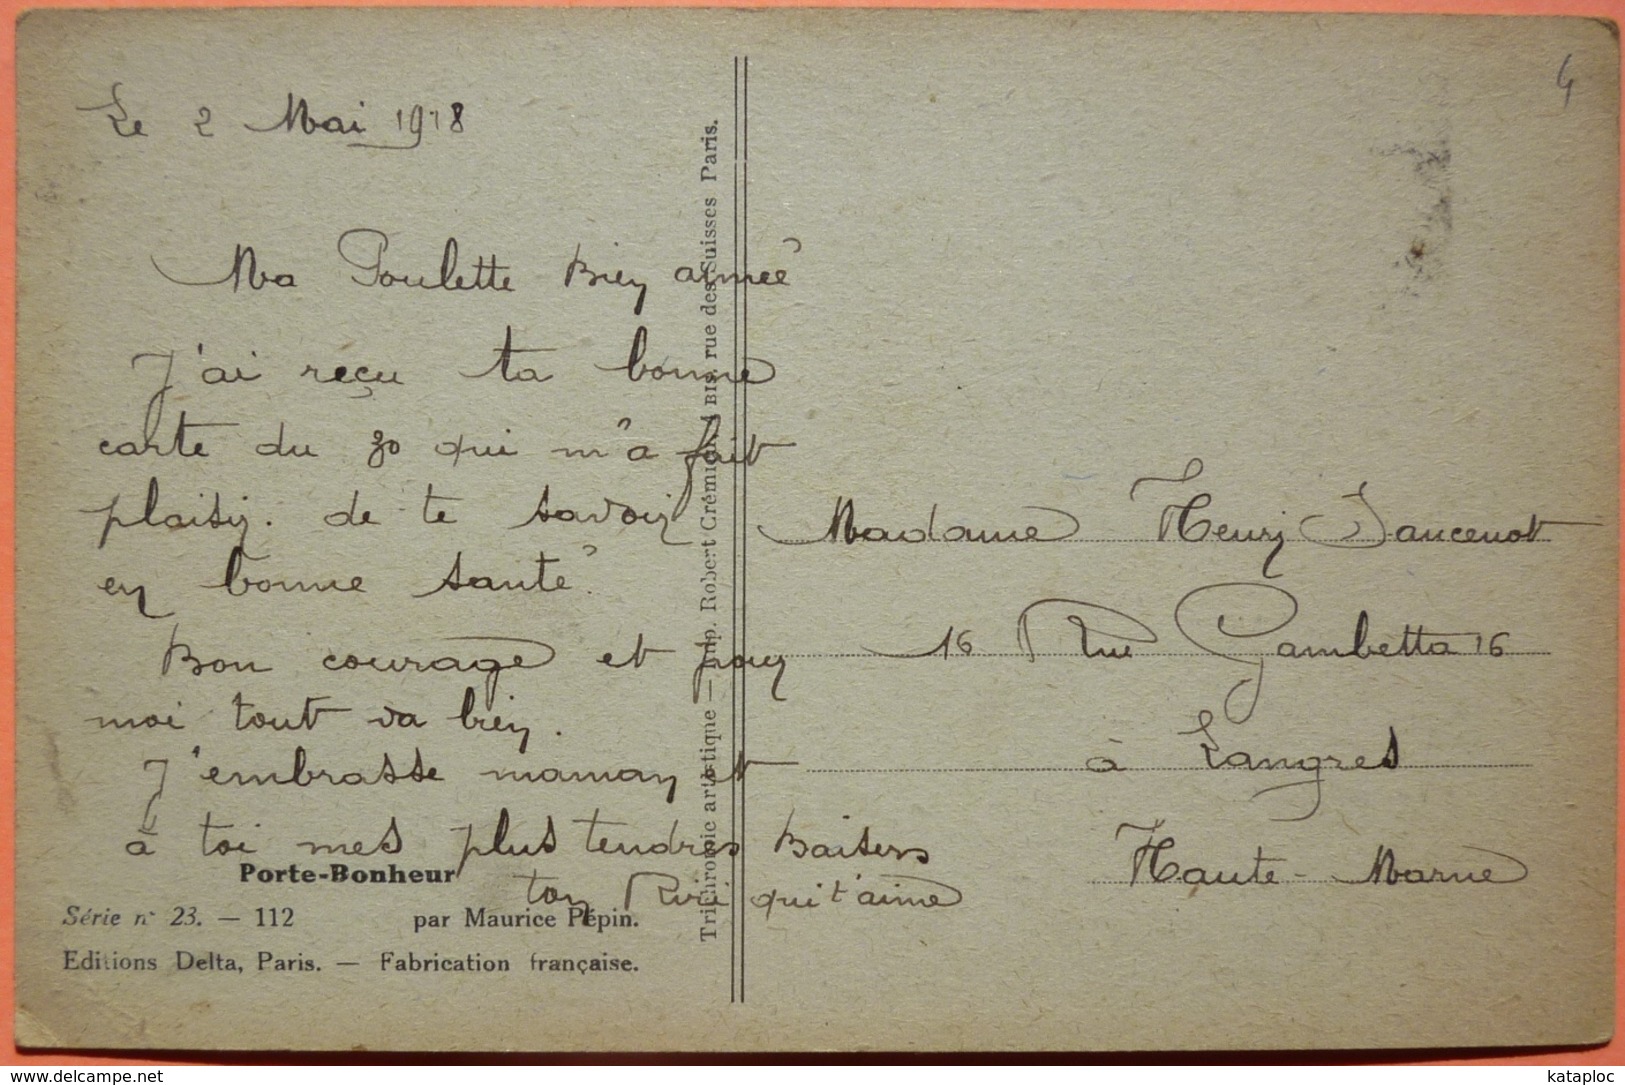 Le 2 Mai 1918
4
Ma Poulette Bien aimée
J'ai reçu ta bonne
carte du 30 qui m'a fait
plaisir. de te savoir
en bonne santé.
Bon courage et pour
moi tout va bien.
J'embrasse maman et
à toi mes plus tendres Baisers
ton Riri qui t'aime
Porte-Bonheur
Série n° 23. — 112 par Maurice Pépin.
Editions Delta, Paris. — Fabrication française.
Trichromie artistique — Imp. Robert Crémieu, BIS, rue des Suisses Paris.
Madame Henry Jancenot
16 Rue Gambetta 16
à Langres
Haute-Marne
http://www.delcampe.net
kataploc